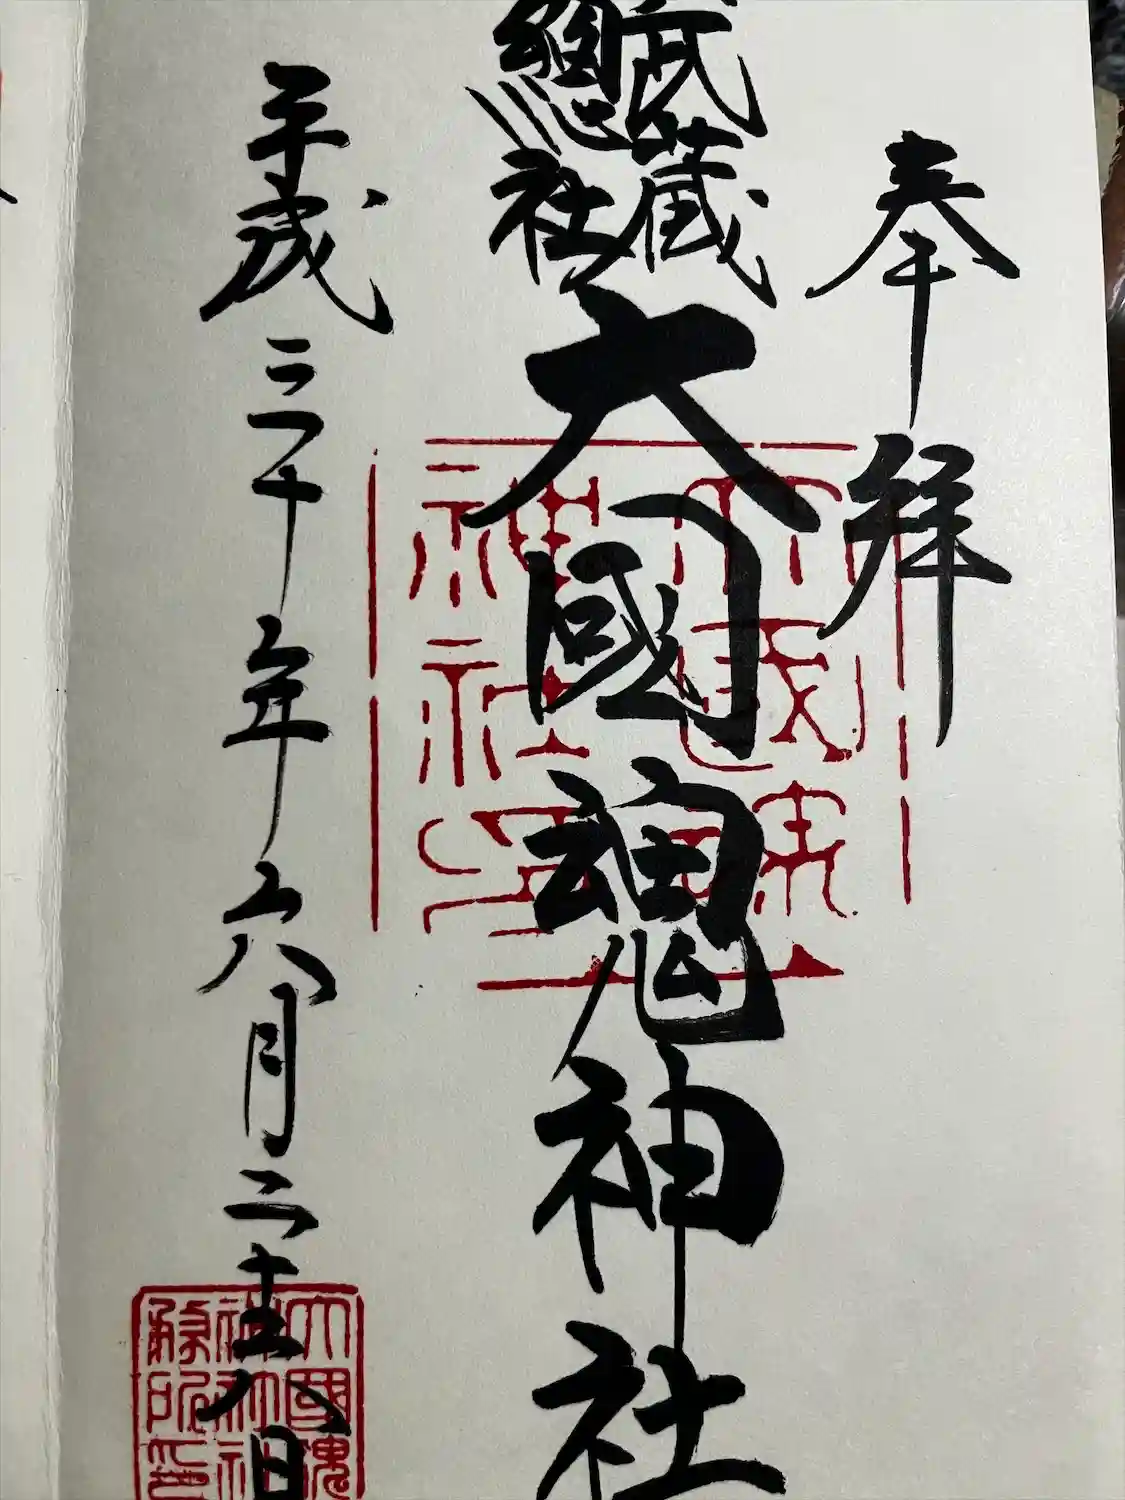 奉拝
武蔵
總社
大國魂神社
大國魂
神社印
平成三十年六月二十八日
大國魂
神社社
務所印